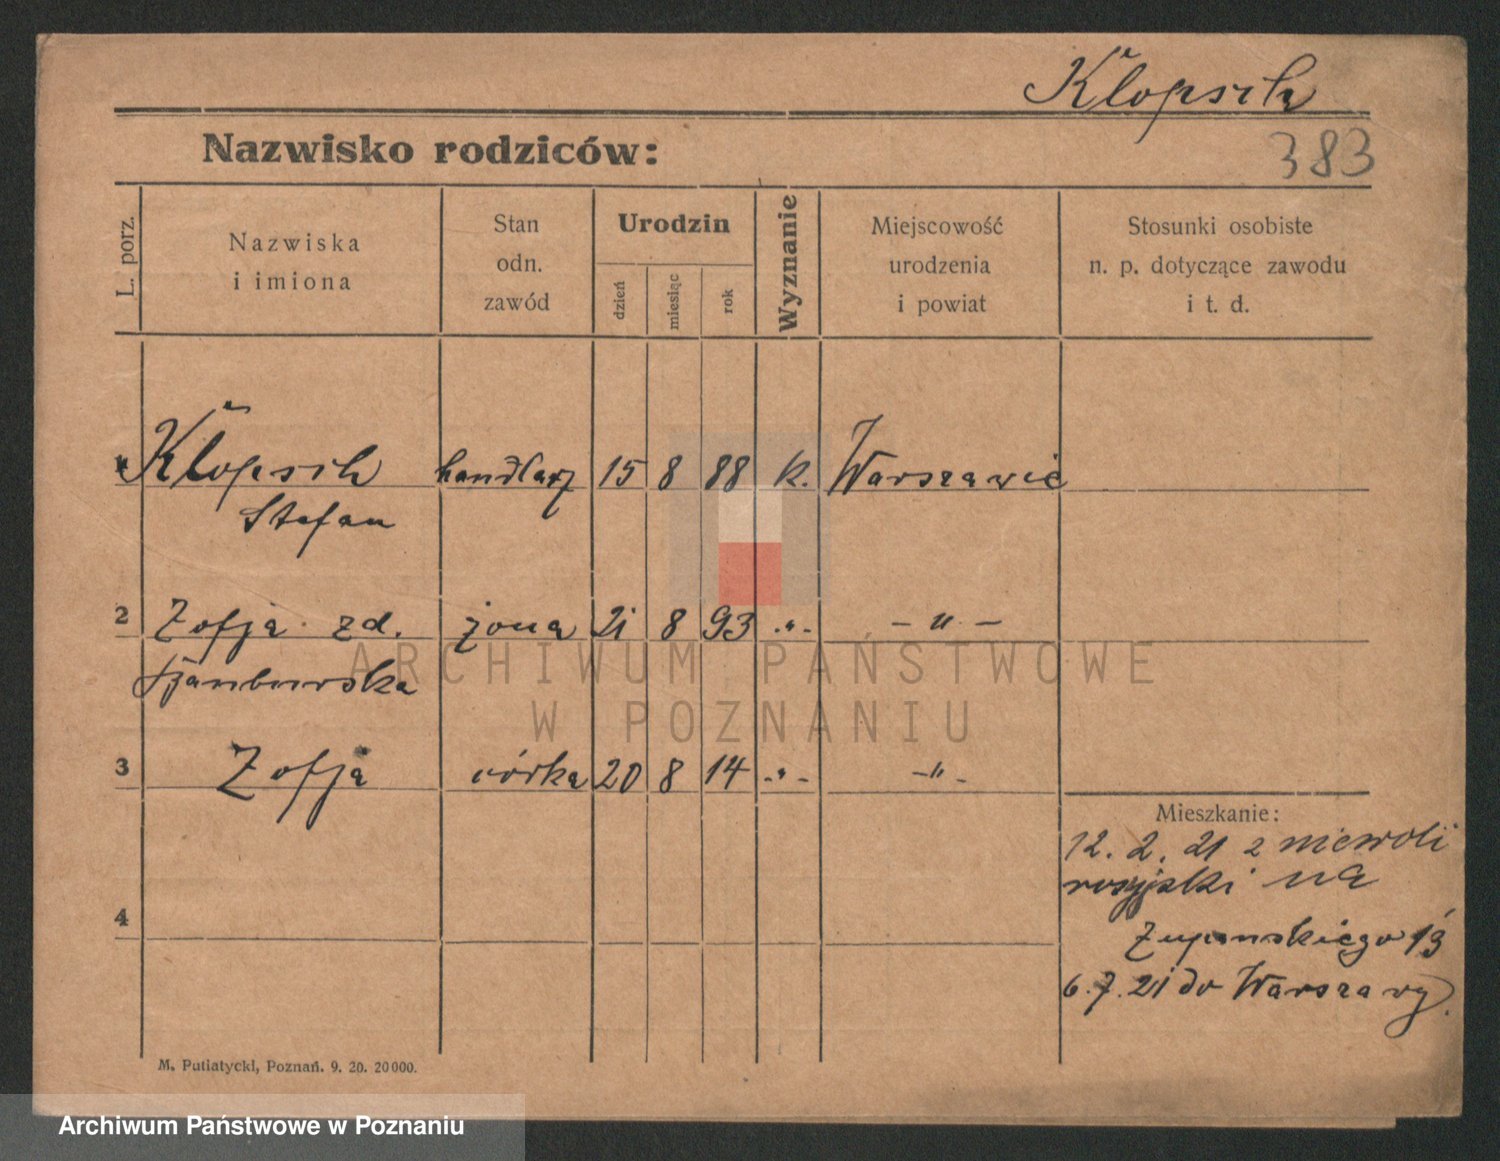 Kłopsch
Nazwisko rodziców:
383
L. porz.
Nazwiska
i imiona
Stan
odn.
zawód
Urodzin
dzień
miesiąc
rok
Wyznanie
Miejscowość
urodzenia
i powiat
Stosunki osobiste
n. p. dotyczące zawodu
i t. d.
1 Kłopsch handlarz 15 8 88 k. Warszawie
Stefan
2 Zofja zd. żona 21 8 93 -"- -"-
ARCHIWUM PAŃSTWOWE
W POZNANIU
3 Zofja córka 20 8 14 -"- -"-
Mieszkanie:
12. 2. 21 z niewoli
rosyjski na
Zupanskiego 13
4
6. 7. 21 do Warszawy.
M. Putiatycki, Poznań. 9. 20. 20000.
Archiwum Państwowe w Poznaniu